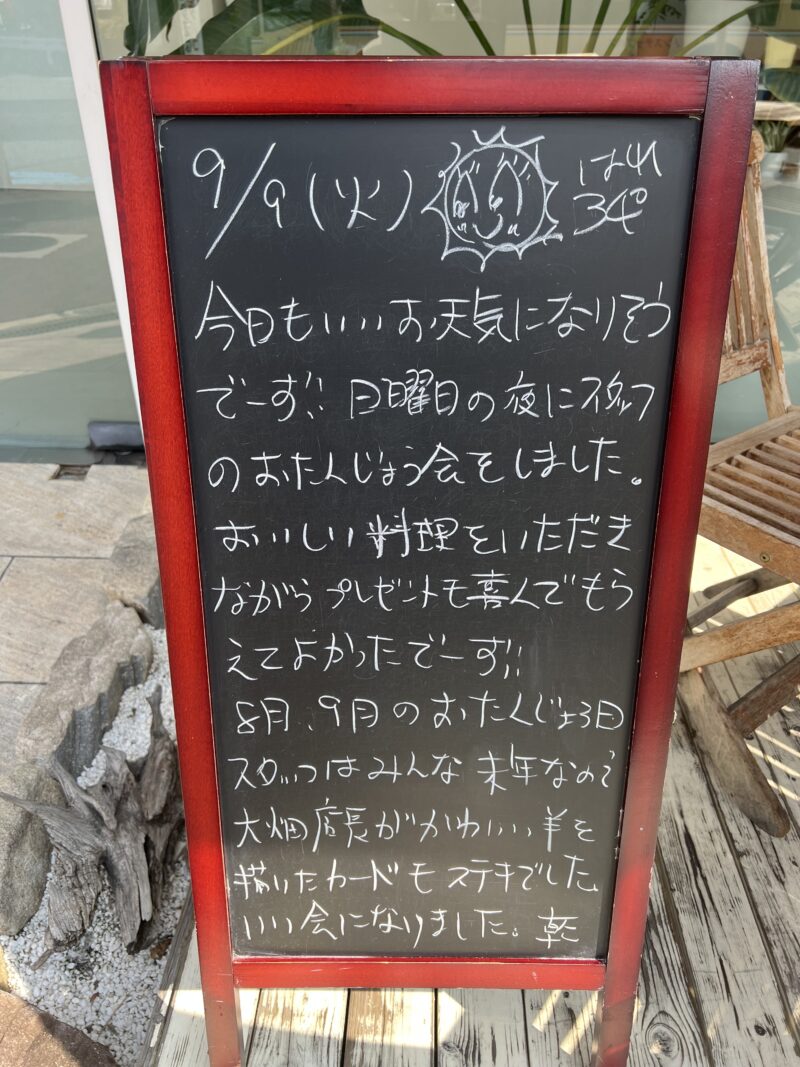 9/9(火) はれ 34°
今日もいいお天気になりそう
でーす!! 日曜日の夜にスタッフ
のおたんじょう会をしました。
おいしい料理をいただき
ながらプレゼントも喜んでもら
えてよかったでーす!!
8月、9月のおたんじょう日
スタッフはみんな 未年なので
大畑店長がかわいい羊を
描いたカードもステキでした
いい会になりました。乾